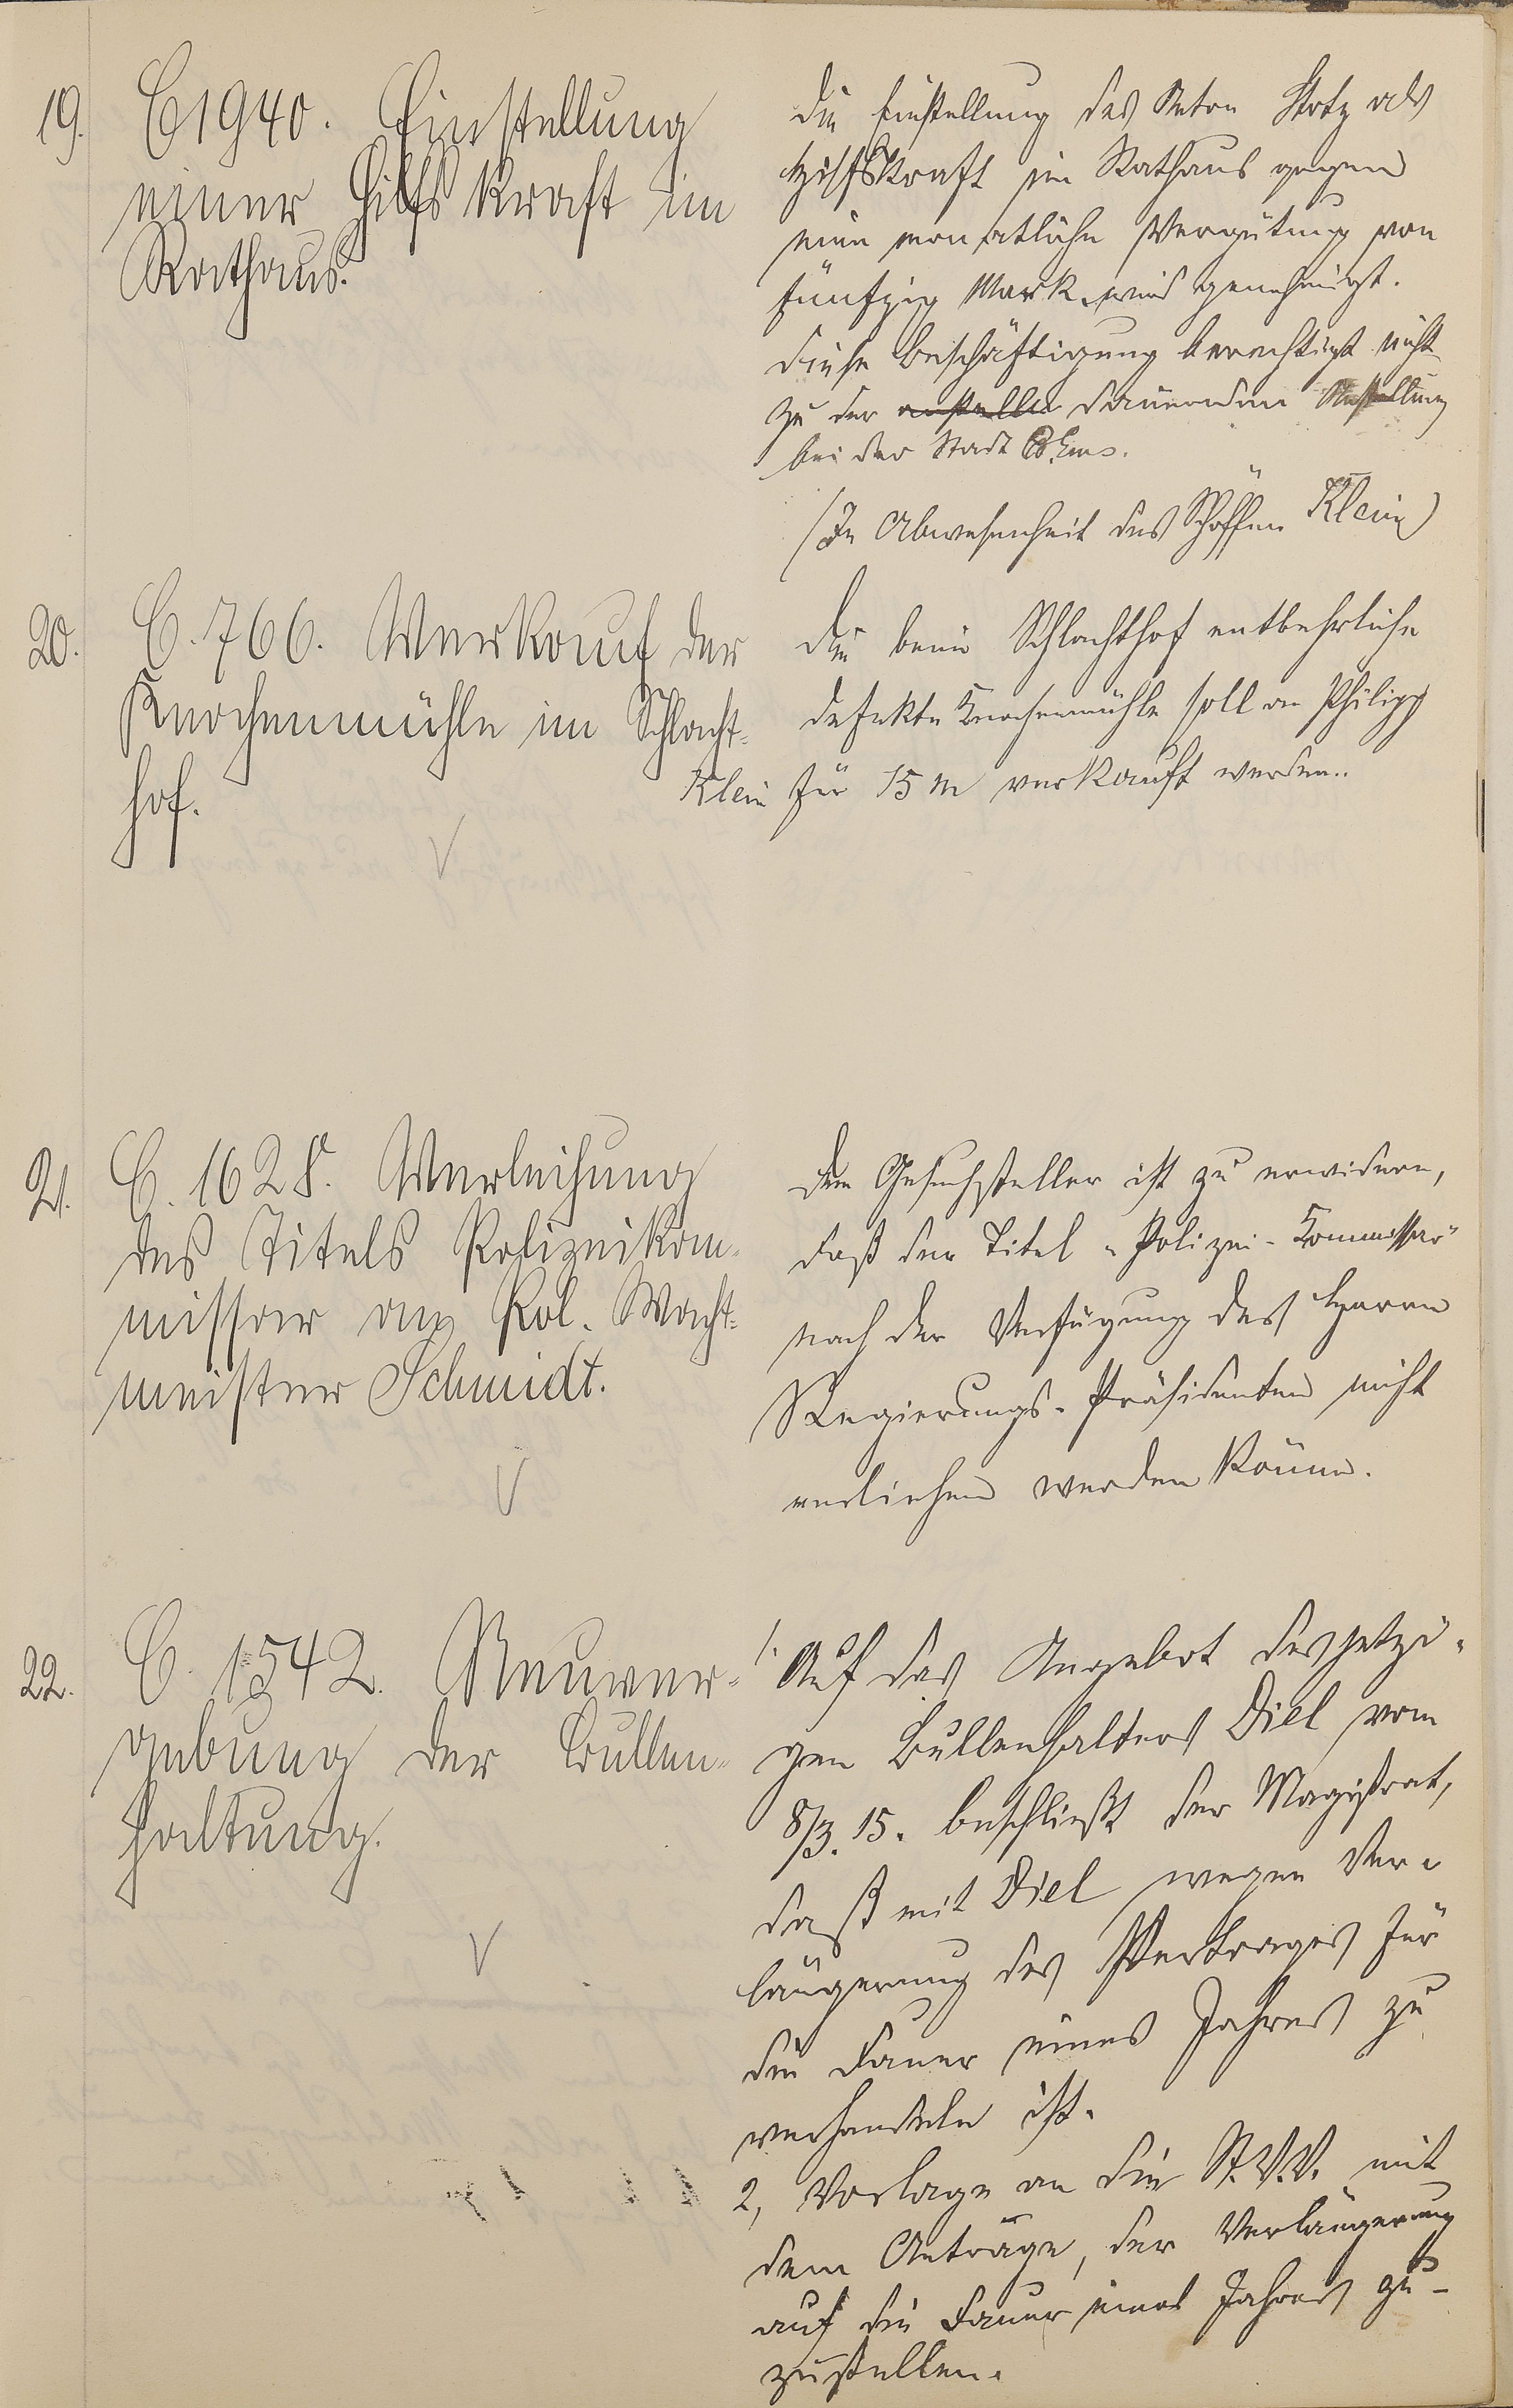 19. C 1940. Einstellung
einer Hilfskraft im
Rathaus.
Die Einstellung des Anton Stotz als
Hilfskraft im Rathaus gegen
eine monatliche Vergütung von
fünfzig Mark wird genehmigt.
Diese Beschäftigung berechtigt nicht
zu der anstelle dauernden Anstellung
bei der Stadt B. Ems.
(In Abwesenheit des Schöffen Klein)
20. C. 766. Verkauf der
Knochenmühle im Schlacht-
hof.
Die beim Schlachthof entbehrliche
defekte Knochenmühle soll an Philipp
Klein für 15 M verkauft werden.
21. C. 1628. Verleihung
des Titels Polizeikom-
missar an Pol. Wacht-
meister Schmidt.
Dem Gesuchsteller ist zu erwidern,
daß der Titel „Polizei-Kommissar"
nach der Verfügung des Herrn
Regierungs-Präsidenten nicht
verliehen werden könne.
22. C. 1542. Neuver-
gebung der Bullen-
haltung.
1. Auf das Angebot des jetzi-
gen Bullenhalters Diel vom
8/3. 15. beschließt der Magistrat,
daß mit Diel wegen Ver-
längerung des Vertrages für
die Dauer eines Jahres zu
verhandeln ist.
2, Vorlage an die St.V.V. mit
dem Antrage, der Verlängerung
auf die Dauer eines Jahres zu-
zustellen.